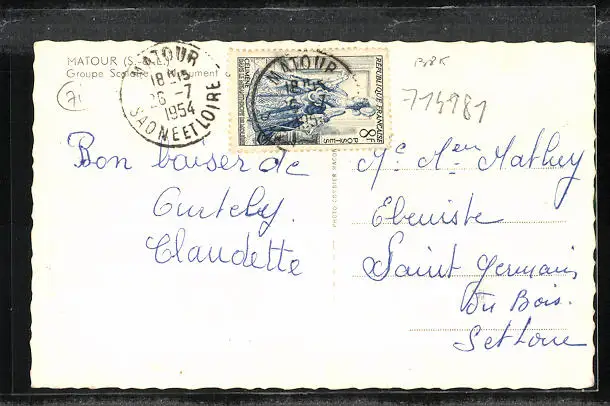 MATOUR (S.-
Groupe Scolaire
71
MATOUR
18 H 15
26 -7
1954
SAONE ET LOIRE
MATOUR
18 H 15
REPUBLIQUE FRANÇAISE
CELIMENE
8F
POSTES
714981
Bon baiser de
Curtely.
Claudette
PHOTO COMBIER MACON
Mr. Men Mathey
Ebeniste
Saint Germain
Du Bois.
S et Loire